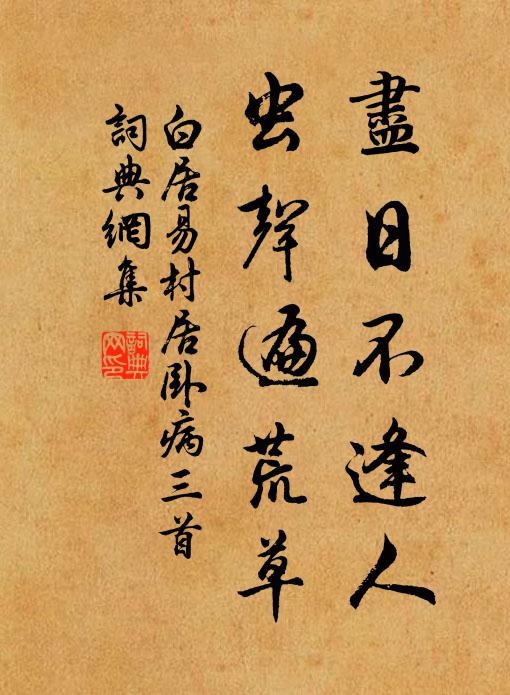 盡日不逢人
虫聲遍荒草
白居易村居臥病三首
詞典網集
詞典網印